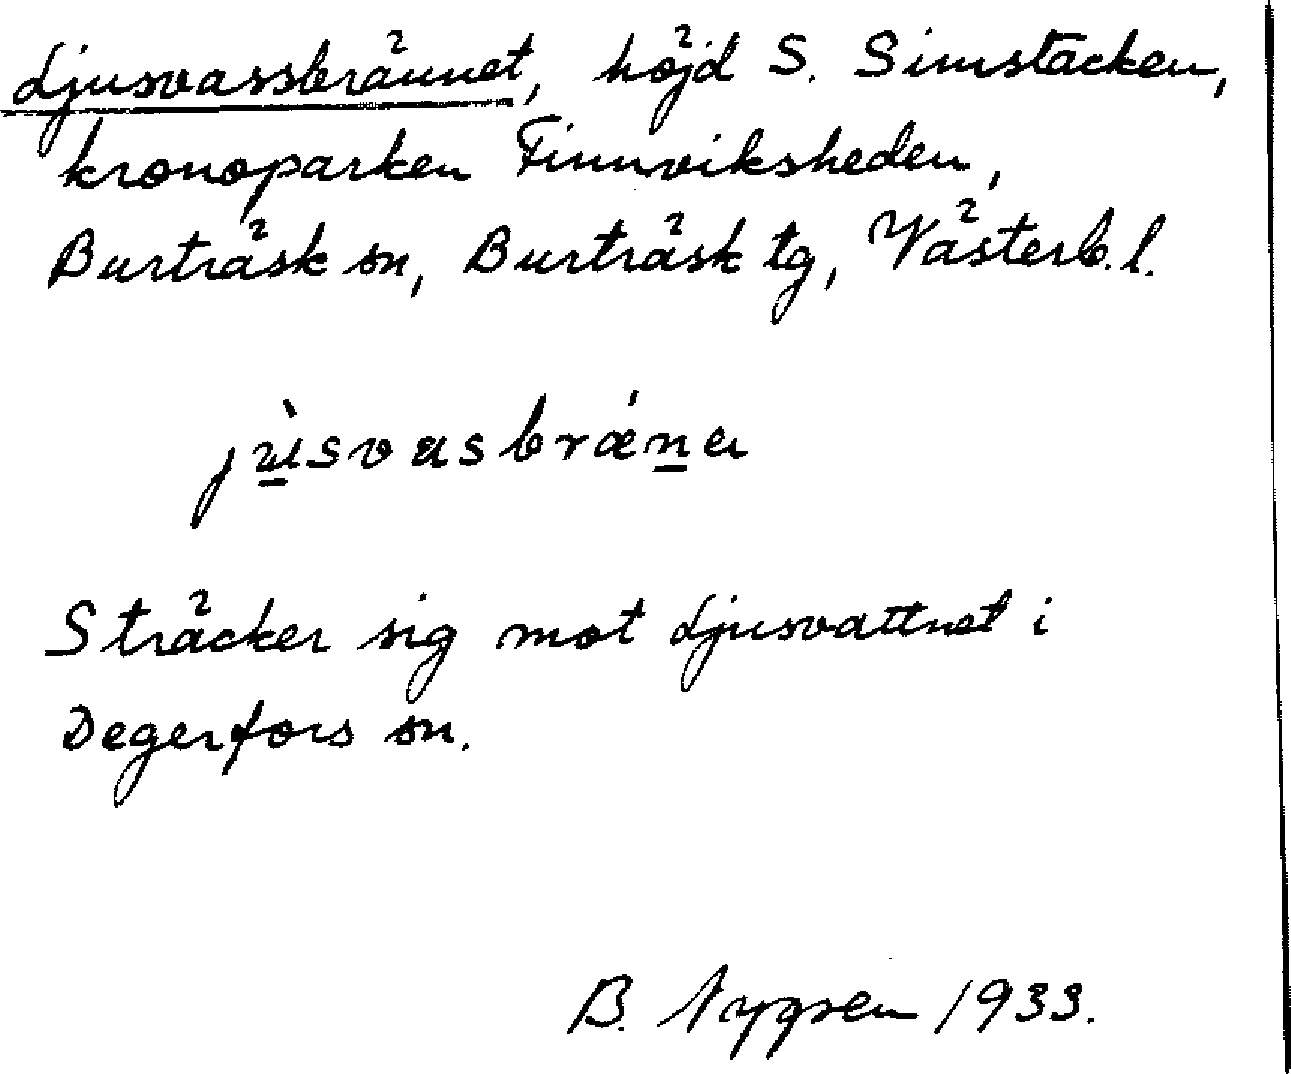 Ljusvassbrännet, höjd S. Simstacken,
kronoparken Finnviksheden,
Burträsk sn, Burträsk tg, Västerb. l.
jùsvasbrǽna
Sträcker sig mot Ljusvattnet i
Degerfors sn.
B. Nygren 1933.